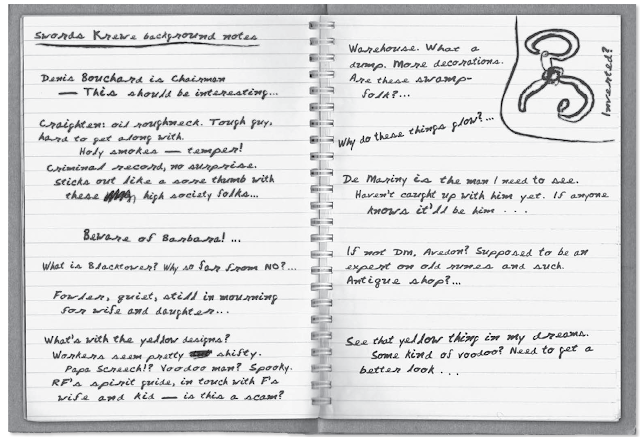 Swords Krewe background notes
Denis Bouchard is Chairman
— This should be interesting...
Craighten: oil roughneck. Tough guy,
hard to get along with.
Holy smokes — temper!
Criminal record, no surprise.
Sticks out like a sore thumb with
these high society folks...
Beware of Barbara! ...
What is Blacktower? Why so far from NO?...
Fowler, quiet, still in mourning
for wife and daughter...
What's with the yellow designs?
Workers seem pretty shifty.
Papa Screech!? Voodoo man? Spooky.
RF's spirit guide, in touch with F's
wife and kid — is this a scam?
Warehouse. What a
dump. More decorations.
Are these swamp-
folk?...
Inverted?
Why do these things glow?...
De Mariny is the man I need to see.
Haven't caught up with him yet. If anyone
knows it'll be him ...
If not Dm, Avedon? Supposed to be an
expert on old runes and such.
Antique shop?...
See that yellow thing in my dreams.
Some kind of voodoo? Need to get a
better look ...